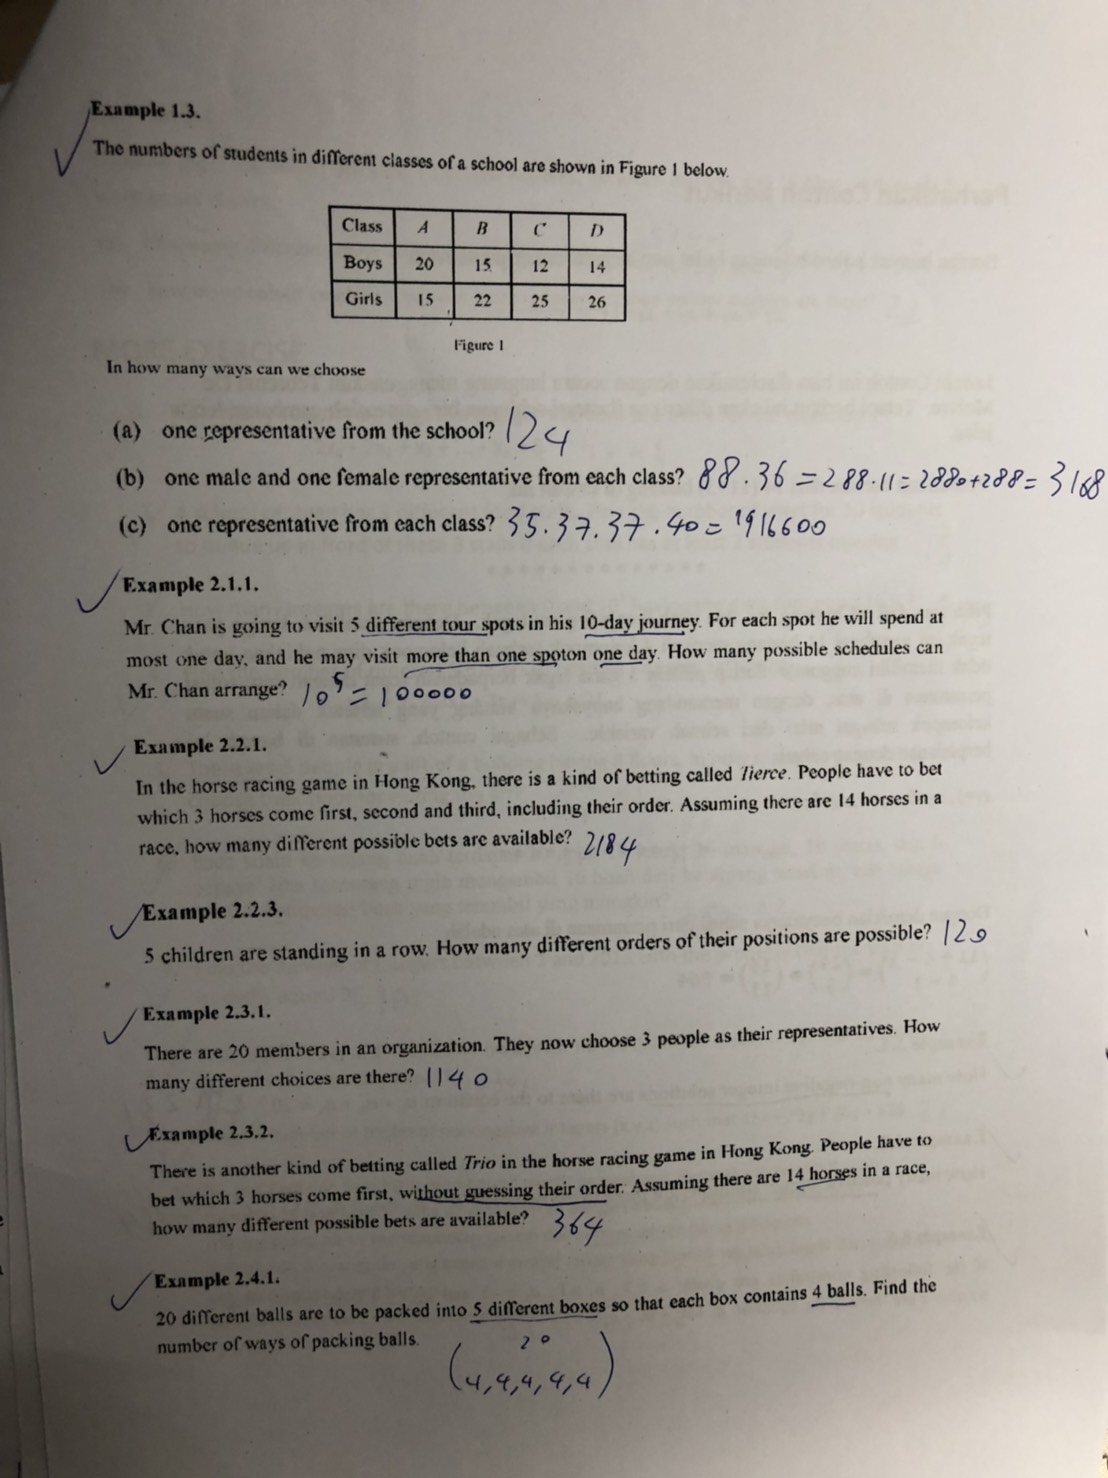 Example 1.3.
The numbers of students in different classes of a school are shown in Figure 1 below.
Class A B C D
Boys 20 15 12 14
Girls 15 22 25 26
Figure 1
In how many ways can we choose
(a) one representative from the school? 124
(b) one male and one female representative from each class? 88.36=288.11=2880+288=3168
(c) one representative from each class? 35.37.37.40=1916600
Example 2.1.1.
Mr. Chan is going to visit 5 different tour spots in his 10-day journey. For each spot he will spend at
most one day, and he may visit more than one spoton one day. How many possible schedules can
Mr. Chan arrange? 10^5=100000
Example 2.2.1.
In the horse racing game in Hong Kong, there is a kind of betting called Tierce. People have to bet
which 3 horses come first, second and third, including their order. Assuming there are 14 horses in a
race, how many different possible bets are available? 2184
Example 2.2.3.
5 children are standing in a row. How many different orders of their positions are possible? 120
Example 2.3.1.
There are 20 members in an organization. They now choose 3 people as their representatives. How
many different choices are there? 1140
Example 2.3.2.
There is another kind of betting called Trio in the horse racing game in Hong Kong. People have to
bet which 3 horses come first, without guessing their order. Assuming there are 14 horses in a race,
how many different possible bets are available? 364
Example 2.4.1.
20 different balls are to be packed into 5 different boxes so that each box contains 4 balls. Find the
number of ways of packing balls.
20
(4,4,4,4,4)